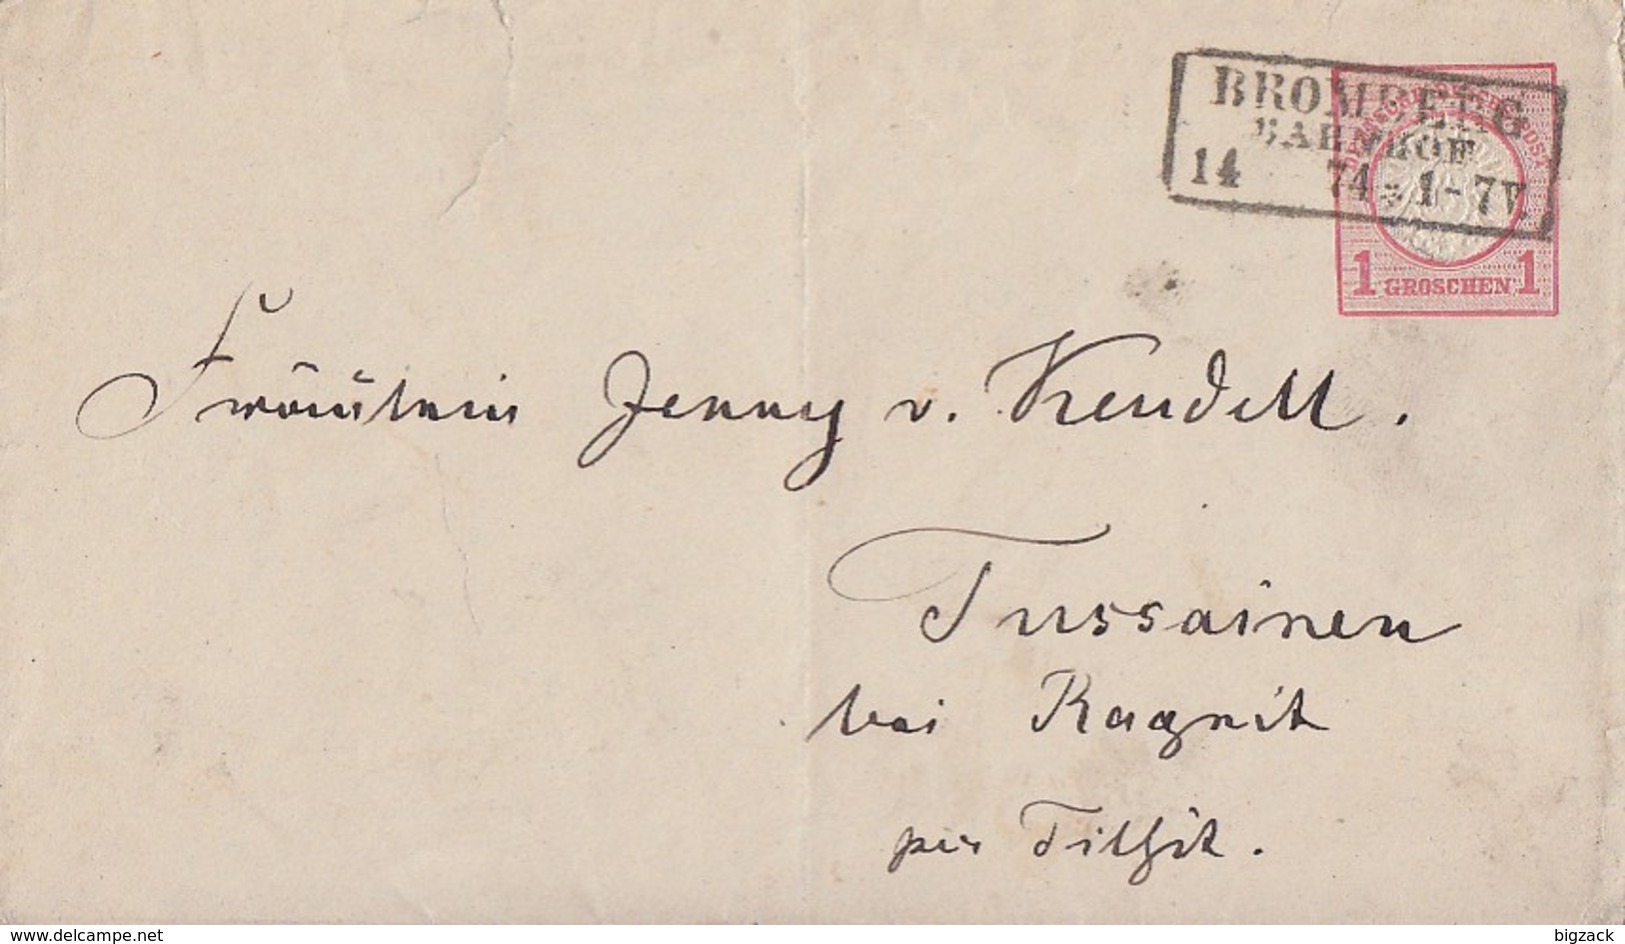 BROMBERG
BAHNHOF
14 74 * 1-7V.
DEUTSCHE REICHS-POST
1 GROSCHEN 1
Fräulein Jenny v. Keudell.
Tussainen
bei Ragnit
per Tilsit.
www.delcampe.net
bigzack